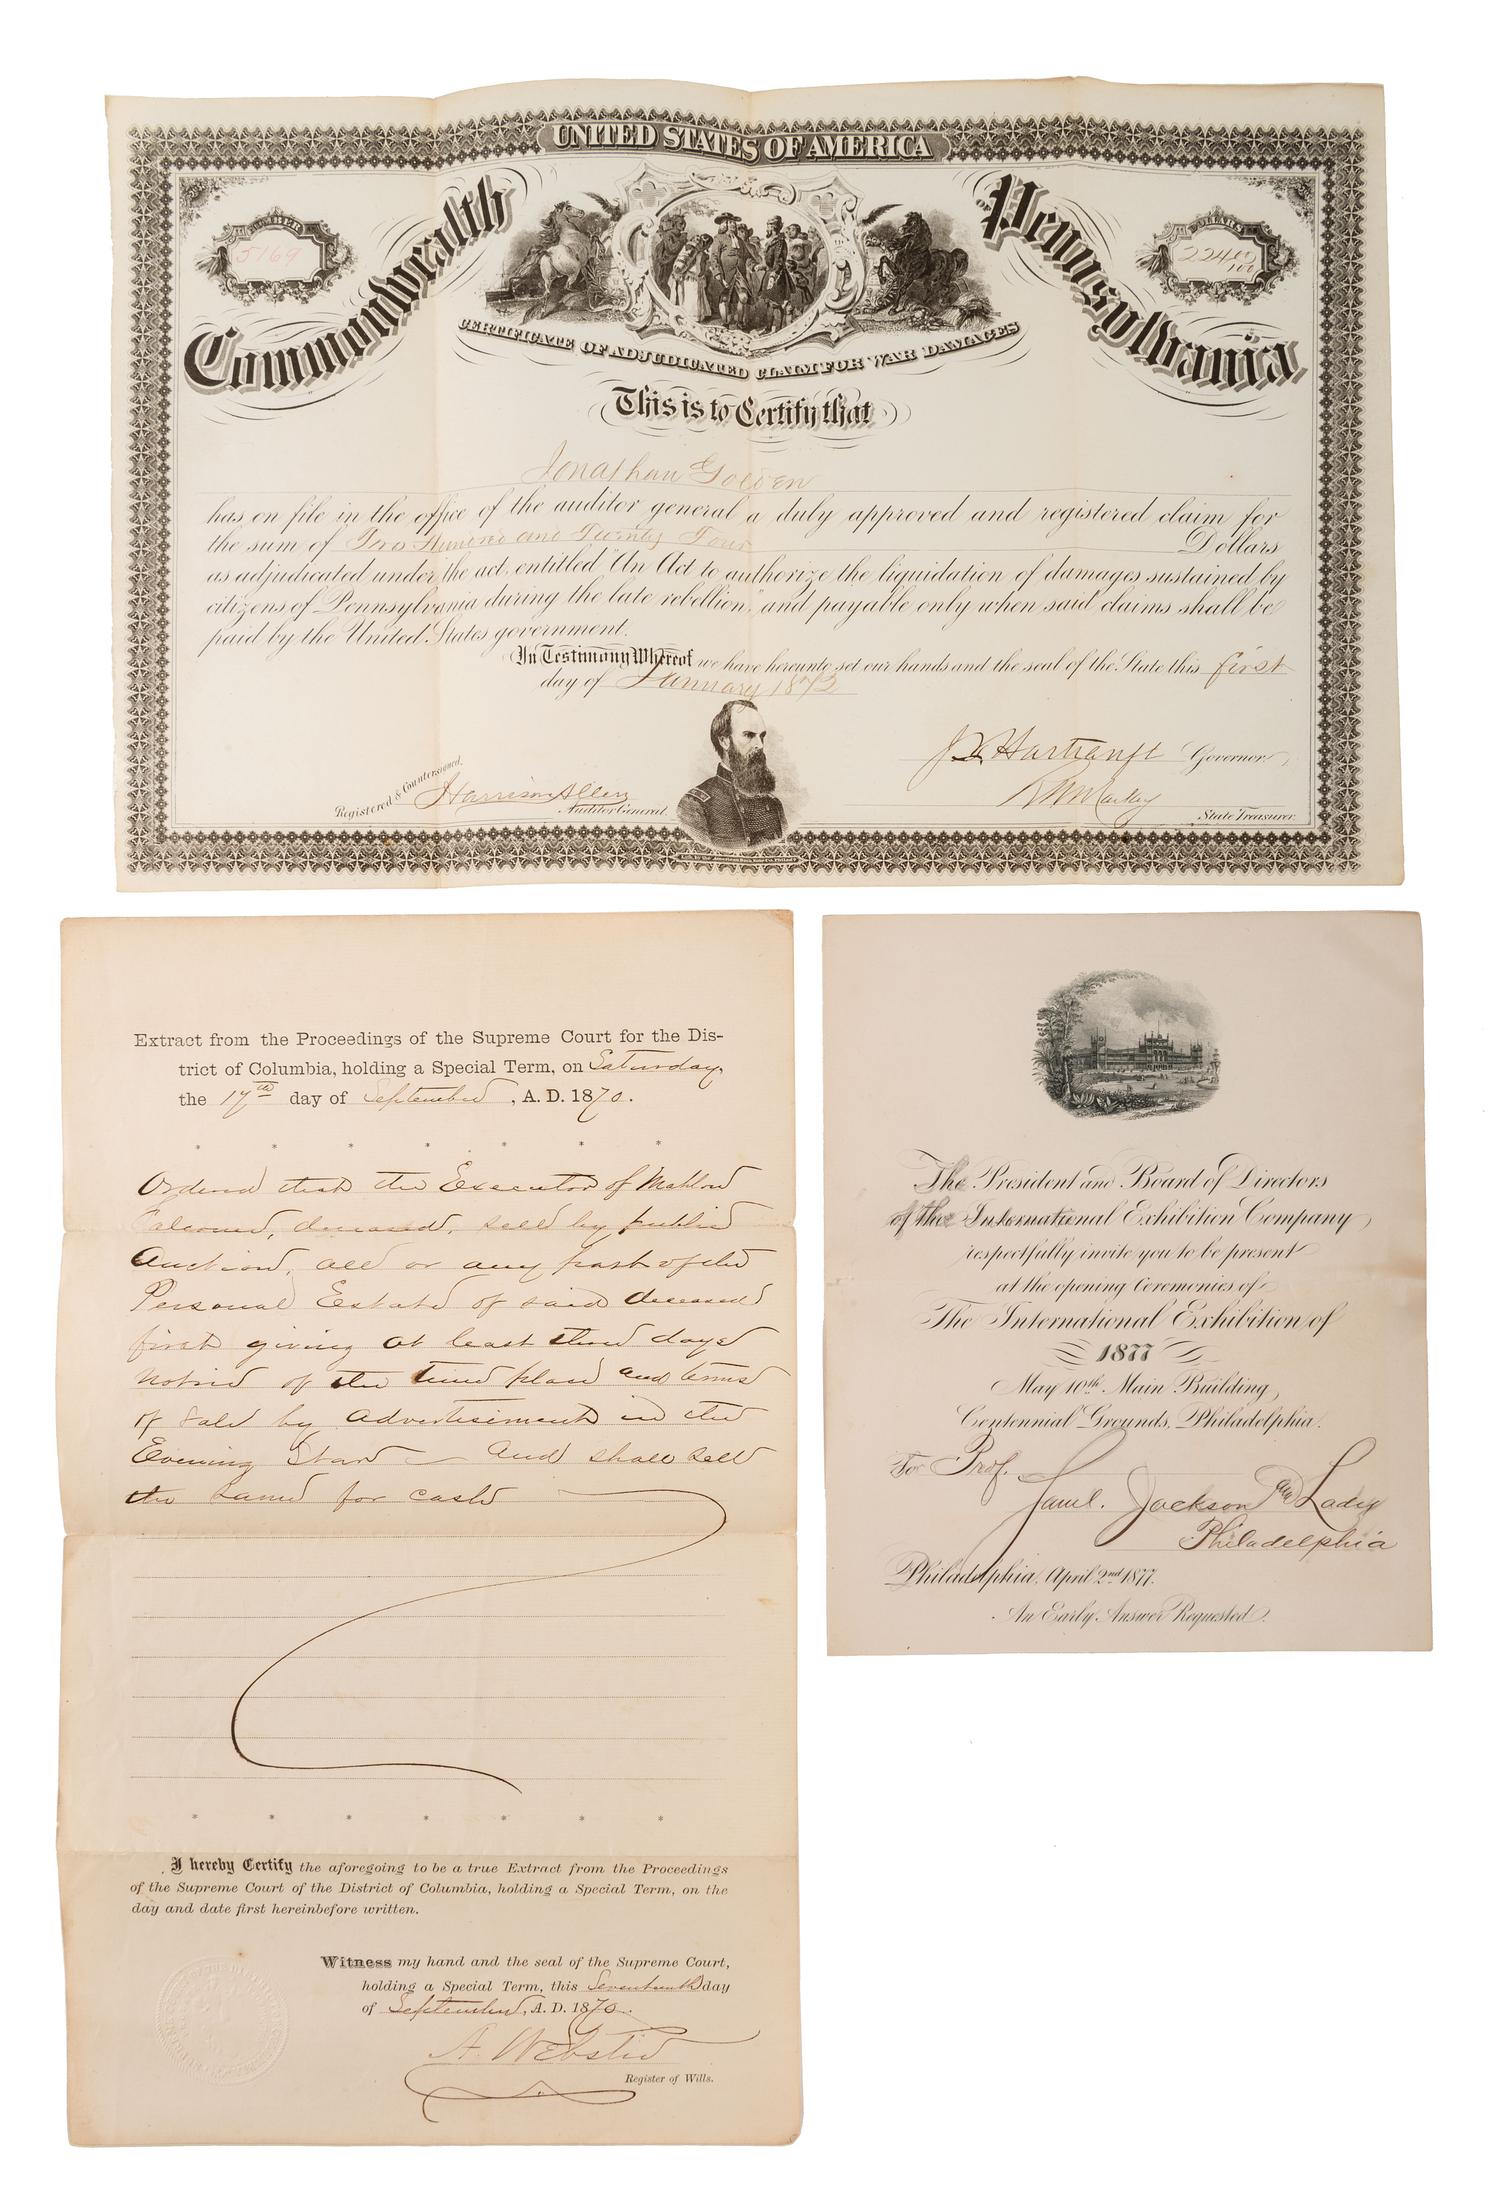 UNITED STATES OF AMERICA
Commonwealth Pennsylvania
NUMBER
5169
DOLLARS
224 00/100
CERTIFICATE OF ADJUDICATED CLAIM FOR WAR DAMAGES
This is to Certify that
Jonathan Golden
has on file in the office of the auditor general a duly approved and registered claim for
the sum of Two Hundred and Twenty Four Dollars
as adjudicated under the act, entitled "An Act to authorize the liquidation of damages sustained by
citizens of Pennsylvania during the late rebellion," and payable only when said claims shall be
paid by the United States government.
In Testimony Whereof we have hereunto set our hands and the seal of the State this first
day of January 1873
J F Hartranft Governor
Registered & Countersigned,
Harrison Allen
Auditor General.
R W Mackey
State Treasurer.
Extract from the Proceedings of the Supreme Court for the Dis-
trict of Columbia, holding a Special Term, on Saturday,
the 17th day of September, A. D. 1870.
* * * * * * *
Ordered that the Executor of Mahlon
deceased, sell by public
Auction, all or any part of the
Personal Estate of said deceased
first giving at least three days
Notice of the time place and terms
of Sale by Advertisement in the
Evening Star — And shall sell
the same for cash
* * * * * * *
I hereby Certify the aforegoing to be a true Extract from the Proceedings
of the Supreme Court of the District of Columbia, holding a Special Term, on the
day and date first hereinbefore written.
Witness my hand and the seal of the Supreme Court,
holding a Special Term, this Seventeenth day
of September, A. D. 1870.
A. Webster
Register of Wills.
The President and Board of Directors
of the International Exhibition Company
respectfully invite you to be present
at the opening Ceremonies of
The International Exhibition of
1877
May 10th Main Building,
Centennial Grounds, Philadelphia.
For Prof.
Saml. Jackson and Lady
Philadelphia
Philadelphia, April 2nd 1877.
An Early Answer Requested.